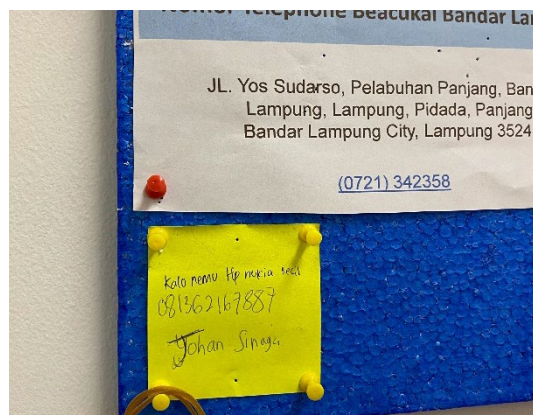 Nomor Telephone Beacukai Bandar La
JL. Yos Sudarso, Pelabuhan Panjang, Ban
Lampung, Lampung, Pidada, Panjang
Bandar Lampung City, Lampung 3524
(0721) 342358
Kalo nemu Hp nokia kecil
081362167887
Johan Sinaga